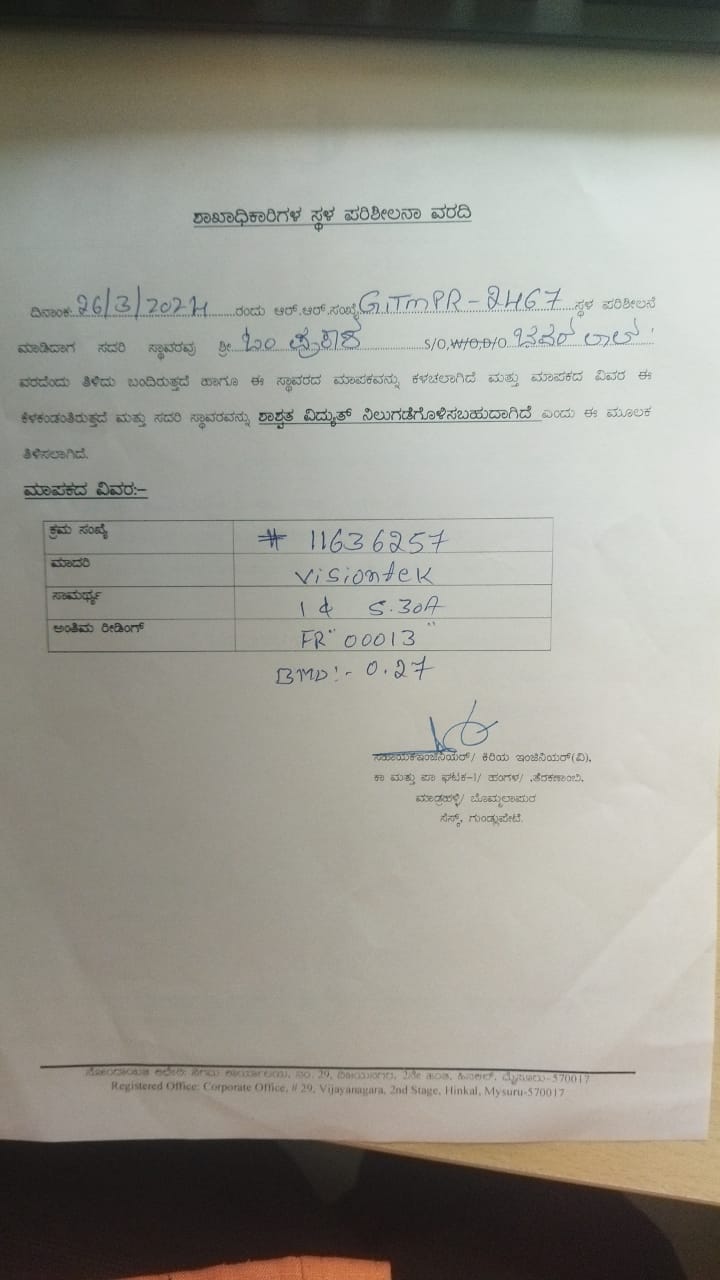 ಶಾಖಾಧಿಕಾರಿಗಳ ಸ್ಥಳ ಪರಿಶೀಲನಾ ವರದಿ
ದಿನಾಂಕ: 26/3/2024 ರಂದು ಆರ್.ಆರ್.ಸಂಖ್ಯೆ GTMPR-2467 ಸ್ಥಳ ಪರಿಶೀಲನೆ
ಮಾಡಿದಾಗ ಸದರಿ ಸ್ಥಾವರವು ಶ್ರೀ. ಓಂ ಪ್ರಕಾಶ S/O,W/O,D/O
ವರದೆಂದು ತಿಳಿದು ಬಂದಿರುತ್ತದೆ ಹಾಗೂ ಈ ಸ್ಥಾವರದ ಮಾಪಕವನ್ನು ಕಳಚಲಾಗಿದೆ ಮತ್ತು ಮಾಪಕದ ವಿವರ ಈ
ಕೆಳಕಂಡಂತಿರುತ್ತದೆ ಮತ್ತು ಸದರಿ ಸ್ಥಾವರವನ್ನು ಶಾಶ್ವತ ವಿದ್ಯುತ್ ನಿಲುಗಡೆಗೊಳಿಸಬಹುದಾಗಿದೆ ಎಂದು ಈ ಮೂಲಕ
ತಿಳಿಸಲಾಗಿದೆ.
ಮಾಪಕದ ವಿವರ:-
ಕ್ರಮ ಸಂಖ್ಯೆ # 11636257
ಮಾದರಿ Visiontek
ಸಾಮರ್ಥ್ಯ 1ф 5.30A
ಅಂತಿಮ ರೀಡಿಂಗ್ FR "00013"
BMD:- 0.27
ಸಹಾಯಕಇಂಜಿನಿಯರ್/ ಕಿರಿಯ ಇಂಜಿನಿಯರ್(ವಿ),
ಕಾ ಮತ್ತು ಪಾ ಘಟಕ-1/ ಹಂಗಳ/ ,ತೆರಕಣಾಂಬಿ,
ಮಾಡ್ರಹಳ್ಳಿ/ ಬೊಮ್ಮಲಾಪುರ
ಸೆಸ್ಕ್, ಗುಂಡ್ಲುಪೇಟೆ.
29, ವಿಜಯನಗರ, 2ನೇ ಹಂತ, ಹಿನಕಲ್, ಮೈಸೂರು-570017
Registered Office: Corporate Office, # 29, Vijayanagara, 2nd Stage, Hinkal, Mysuru-570017